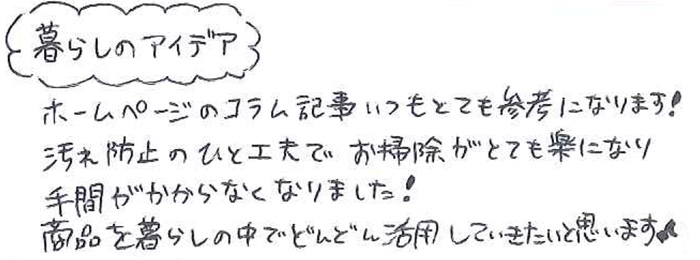 暮らしのアイデア
ホームページのコラム記事いつもとても参考になります!
汚れ防止のひと工夫でお掃除がとても楽になり
手間がかからなくなりました!
商品を暮らしの中でどんどん活用していきたいと思います♪